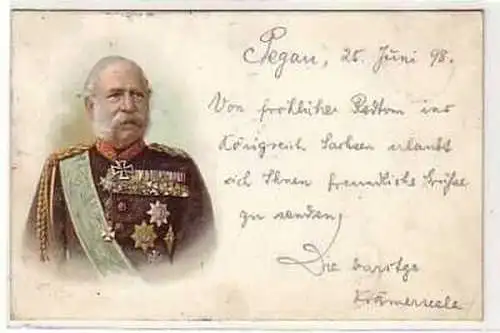 Pegau, 25. Juni 98.
Von fröhlicher ins
Königreich Sachsen erlaubt
sich Ihnen freundliche Grüße
zu senden,
Die